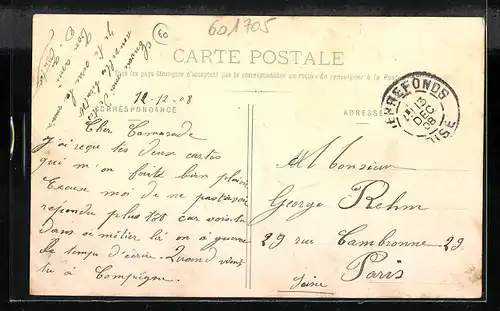 601705
CARTE POSTALE
Tous les pays étrangers n'acceptent pas la correspondance au recto
CORRESPONDANCE
ADRESSE
12-12-08
PIERREFONDS
OISE
Cher Camarade
J'ai reçue tes deux cartes
qui m'on faite bien plaisir
Excuse moi de ne pas avoir
repondu plus tôt car vois-tu
Dans ce métier là on a guere
le temps d'écrire. Quand viens
tu à Compiègne.
Monsieur
George Rehm
29 rue Cambronne 29
Paris
Seine